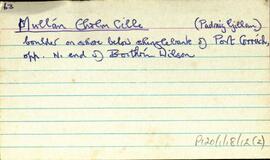 63
Mullán Cholm Cille (Padraig Gillan)
boulder on shore below shingle bank of Port Corrach,
opp. N. end of Bothán Wilson
P120/1/18/12(2)